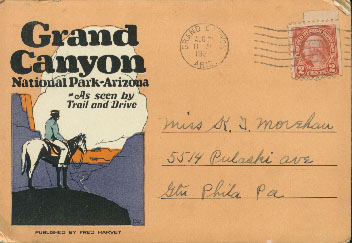 Grand
Canyon
National Park-Arizona
"As seen by
Trail and Drive
PUBLISHED BY FRED HARVEY
GRAND
ARIZ.
2 2
Miss K. T.
5514 Pulaski ave
Gtn Phila Pa